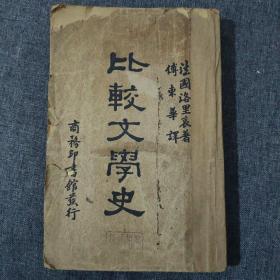 法國洛里哀著
傅東華譯
比較文學史
商務印書館發行